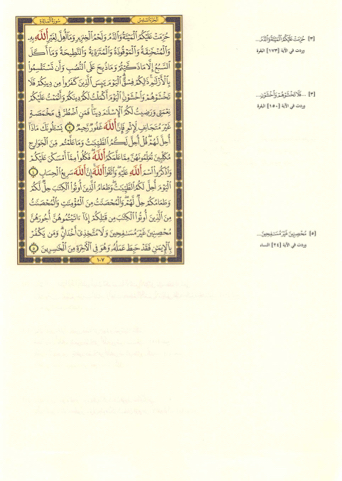 الجزء السادس
سورة المائدة
حُرِّمَتْ عَلَيْكُمُ الْمَيْتَةُ وَالدَّمُ وَلَحْمُ الْخِنزِيرِ وَمَا أُهِلَّ لِغَيْرِ اللَّهِ بِهِ
وَالْمُنْخَنِقَةُ وَالْمَوْقُوذَةُ وَالْمُتَرَدِّيَةُ وَالنَّطِيحَةُ وَمَا أَكَلَ
السَّبُعُ إِلَّا مَا ذَكَّيْتُمْ وَمَا ذُبِحَ عَلَى النُّصُبِ وَأَن تَسْتَقْسِمُوا
بِالْأَزْلَامِ ذَلِكُمْ فِسْقٌ الْيَوْمَ يَئِسَ الَّذِينَ كَفَرُوا مِن دِينِكُمْ فَلَا
تَخْشَوْهُمْ وَاخْشَوْنِ الْيَوْمَ أَكْمَلْتُ لَكُمْ دِينَكُمْ وَأَتْمَمْتُ عَلَيْكُمْ
نِعْمَتِي وَرَضِيتُ لَكُمُ الْإِسْلَامَ دِينًا فَمَنِ اضْطُرَّ فِي مَخْمَصَةٍ
غَيْرَ مُتَجَانِفٍ لِإِثْمٍ فَإِنَّ اللَّهَ غَفُورٌ رَّحِيمٌ ٣ يَسْأَلُونَكَ مَاذَا
أُحِلَّ لَهُمْ قُلْ أُحِلَّ لَكُمُ الطَّيِّبَاتُ وَمَا عَلَّمْتُم مِّنَ الْجَوَارِحِ
مُكَلِّبِينَ تُعَلِّمُونَهُنَّ مِمَّا عَلَّمَكُمُ اللَّهُ فَكُلُوا مِمَّا أَمْسَكْنَ عَلَيْكُمْ
وَاذْكُرُوا اسْمَ اللَّهِ عَلَيْهِ وَاتَّقُوا اللَّهَ إِنَّ اللَّهَ سَرِيعُ الْحِسَابِ ٤
الْيَوْمَ أُحِلَّ لَكُمُ الطَّيِّبَاتُ وَطَعَامُ الَّذِينَ أُوتُوا الْكِتَابَ حِلٌّ لَّكُمْ
وَطَعَامُكُمْ حِلٌّ لَّهُمْ وَالْمُحْصَنَاتُ مِنَ الْمُؤْمِنَاتِ وَالْمُحْصَنَاتُ
مِنَ الَّذِينَ أُوتُوا الْكِتَابَ مِن قَبْلِكُمْ إِذَا آتَيْتُمُوهُنَّ أُجُورَهُنَّ
مُحْصِنِينَ غَيْرَ مُسَافِحِينَ وَلَا مُتَّخِذِي أَخْدَانٍ وَمَن يَكْفُرْ
بِالْإِيمَانِ فَقَدْ حَبِطَ عَمَلُهُ وَهُوَ فِي الْآخِرَةِ مِنَ الْخَاسِرِينَ ٥
١٠٧
[٣] حُرِّمَتْ عَلَيْكُمُ الْمَيْتَةُ وَالدَّمُ...
وردت في الآية [١٧٣] البقرة
[٣] ...فَلَا تَخْشَوْهُمْ وَاخْشَوْنِ...
وردت في الآية [١٥٠] البقرة
[٥] مُحْصِنِينَ غَيْرَ مُسَافِحِينَ...
وردت في الآية [٢٤] النساء